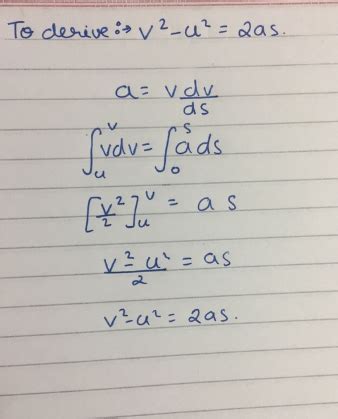 To derive :→ v² - u² = 2as.
a = v dv/ds
∫ᵤᵛ vdv = ∫₀ˢ a ds
[v²/2]ᵤᵛ = a s
(v² - u²)/2 = as
v² - u² = 2as.